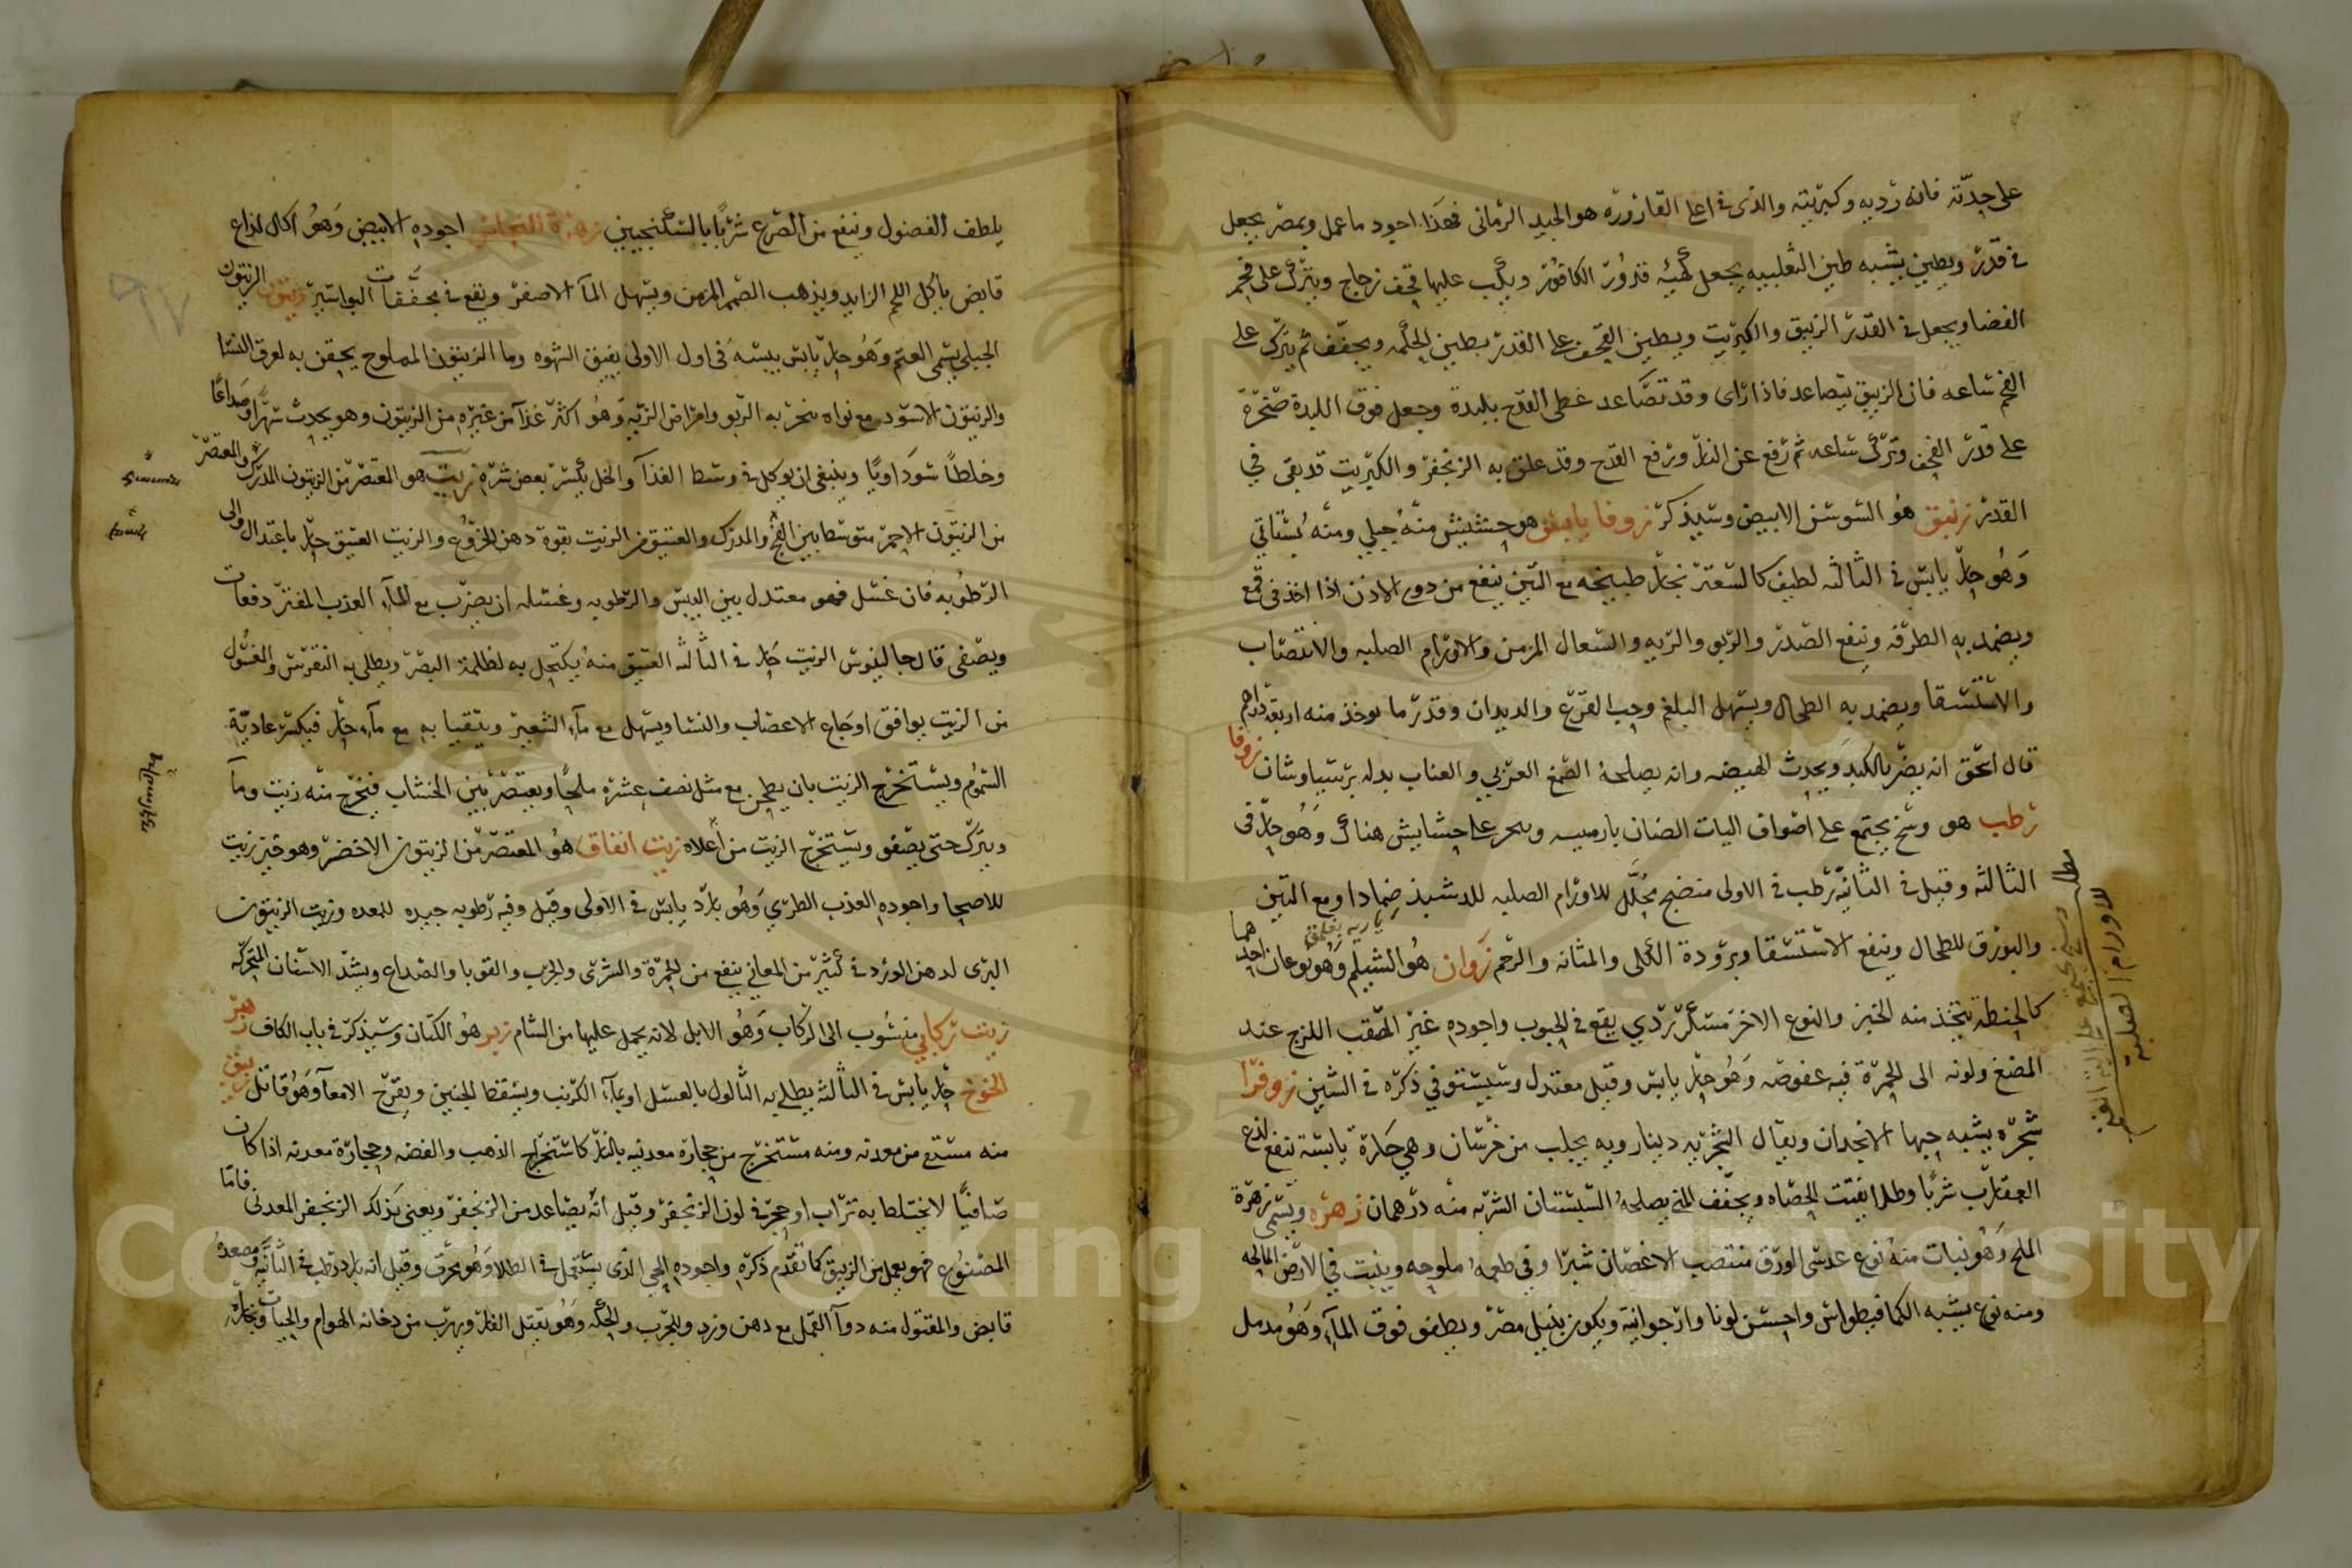 على حدته فانه رديه وكبريتيه والذى فى اعلا القارورة هو الجيد الرمانى فهذا اجود ما عمل وبمصر يجعل
فى قدر ويطين بشبه طين الثعلبيه يجعل كهيئه قدور الكافور ويكب عليها قحف زجاج ويترك على فحم
الغضا ويجعل فى القدر الزيبق والكبريت ويطين القحف على القدر بطين الحكمه ويجفف ثم يترك على
الفحم ساعه فان الزيبق يتصاعد فاذا راى وقد تصاعد غطى القدح بلبدة وجعل فوق اللبدة صخرة
على قدر القحف وترك ساعه ثم رفع عن النار ورفع القدح وقد علق به الزنجفر والكبريت قد بقى فى
القدر زنبق هو السوسن الابيض وسيذكر زوفا يابس هو حشيش منه جبلي ومنه بستاني
وهو حار يابس فى الثالثه لطيف كالسعتر بخار طبيخه مع التين ينفع من دوى الاذن اذا اخذ فى قمع
ويضمد به الطرفه وينفع الصدر والربو والريه والسعال المزمن والاورام الصلبه والانتصاب
والاستسقا ويضمد به الطحال ويسهل البلغم وحب القرع والديدان وقدر ما يوخذ منه اربعة دراهم
قال اسحق انه يضر بالكبد ويحدث الهيضه وانه يصلحه الصمغ العربي والعناب بدله برسياوشان زوفا
رطب هو وسخ يجتمع على اصواف اليات الضان بارمينيه على حشايش هناك وهو حار فى
الثالثه وقيل فى الثانيه رطب فى الاولى منضج محلل للاورام الصلبه للدشبذ ضمادا ومع التين
والبورق للطحال وينفع الاستسقا وبرودة الكلى والمثانه والرحم زوان هو الشيلم وهو نوعان احدهما
كالحنطة يتخذ منه الخبز والنوع الاخر مسكر ردي يقع فى الحبوب واجوده غير المثقب اللزج عند
المضغ ولونه الى الحمرة فيه عفوصه وهو حار يابس وقيل معتدل وسيستوفي ذكره فى الشين زوفرا
شجرة يشبه حبها الانجدان ويقال الشجريه دينارويه يجلب من خرسان وهي حارة يابسة تنفع لذع
العقارب شربا وطلا يفتت الحصاه ويجفف المني يصلحه السبستان الشربه منه درهمان زهره ويسمى زهرة
الملح وهو نبات منه نوع عدسى الورق منتصب الاغصان شبرا وفى طعمه ملوحه وينبت في الارض المالحه
ومنه نوع يشبه الكمافيطوس واحسن لونا وارجوانية ويكون بنيل مصر ويطفو فوق المآء وهو مدمل
يلطف الفضول وينفع من الصرع شربا بالسكنجبين زهرة النحاس اجوده الابيض وهو اكال لذاع
قابض ياكل اللحم الزايد ويذهب الصمم المزمن ويسهل المآ الاصفر ويقع فى مجففات البواسير زيتون الزيتون
الجبلي يسمى العتم وهو حار يابس يبسه فى اول الاولى يفيق الشهوه وما الزيتون المملوح يحقن به لعرق النسا
والزيتون الاسود مع نواه يبخر به الربو وامراض الريه وهو اكثر غذآ من غيره من الزيتون وهو يحدث سهرا وصداعا
وخلطا سوداويا وينبغى ان يوكل فى وسط الغذآ والخل يكسر بعض شره زيت هو المعتصر من الزيتون المدرك والمعتصر
من الزيتون الاحمر متوسط بين الفج والمدرك والعتيق من الزيت بقوة دهن الخروع والزيت العتيق حار باعتدال والى
الرطوبه فان غسل فهو معتدل بين اليبس والرطوبه وغسله ان يضرب مع المآء العذب المفتر دفعات
ويصفى قال جالينوس الزيت حار فى الثالثه العتيق منه يكتحل به لظلمة البصر ويطلى به النقرس والمغسول
من الزيت يوافق اوجاع الاعصاب والنسا ويسهل مع مآء الشعير ويتقيا به مع مآء حار فيكسر عادية
السموم ويستخرج الزيت بان يطحن مع مثل نصف عشره ملحا ويعتصر بين الخشاب فيخرج منه زيت ومآ
ويترك حتى يصفو ويستخرج الزيت من اعلاه زيت انفاق هو المعتصر من الزيتون الاخضر وهو خير زيت
للاصحا واجوده العذب الطري وهو بارد يابس فى الاولى وقيل وفيه رطوبه جيده للمعده وزيت الزيتون
البرى لدهن الورد فى كثير من المعاني ينفع من الحمرة والشرى والجرب والقوبا والصداع ويشد الاسنان المتحركه
زيت ركابي منسوب الى الركاب وهو الابل لانه يحمل عليها من الشام زير هو الكتان وسيذكر فى باب الكاف زهر
الخوخ حار يابس فى الثالثه يطلى به الثالول بالعسل او بمآء الكرنب ويسقط الجنين ويقرح الامعآ وهو قاتل زيبق
منه مستقى من معدنه ومنه مستخرج من حجارة معدنيه بالنار كاستخراج الذهب والفضه وحجارة معدنه اذا كان
صافيا لا يختلط به تراب او حجر فى لون الزنجفر وقيل انه يتصاعد من الزنجفر ويعنى بذلك الزنجفر المعدنى فاما
المصنوع فهو يعمل من الزيبق كما تقدم ذكره واجوده الحي الذى يستعمل فى الطلا وهو محرق وقيل انه بارد رطب فى الثانيه ومصعده
قابض والمقتول منه دوآ القمل مع دهن ورد وللجرب والحكه وهو يقتل الفار ويهرب من دخانه الهوام والحيات وبخاره